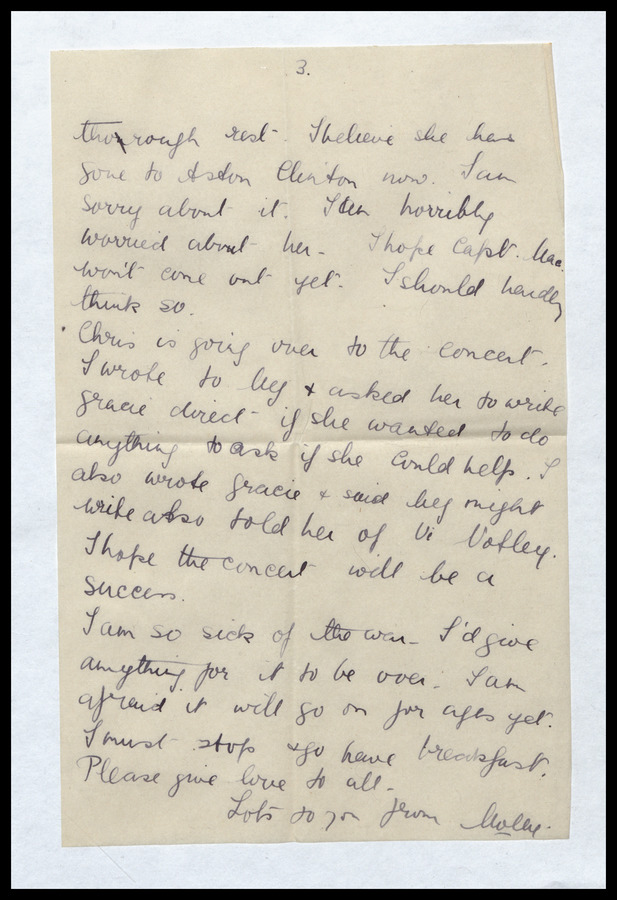 3.
thorough rest. I believe she has
gone to Aston Clinton now. I am
sorry about it. I am horribly
worried about her - I hope Capt. Mac.
won't come out yet. I should hardly
think so.
Chris is going over to the concert.
I wrote to Meg & asked her to write
gracie direct - if she wanted to do
anything to ask if she could help. I
also wrote gracie & said Meg might
write also told her of Vi
I hope the concert will be a
success.
I am so sick of the war - I'd give
anything for it to be over. I am
afraid it will go on for ages yet.
I must stop & go have breakfast.
Please give love to all -
Lots to you from